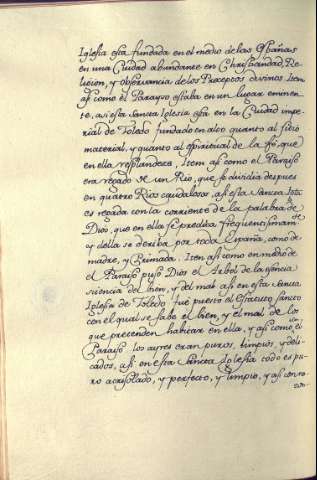 Iglesia esta fundada en el medio de las Españas
en una Ciudad abundante en Christiandad, Re-
ligion, y observancia de los Preceptos divinos. Item
asi como el Parayso estaba en un lugar eminen-
te, asi esta Sancta Iglesia esta en la Ciudad impe-
rial de Toledo fundado en alto quanto al sitio
material, y quanto al espiritual de la fé, que
en ella resplandece, Item asi como el Paraiso
era regado de un Rio, que se dividia despues
en quatro Rios caudalosos, asi esta Sancta Igla
es regada con la corriente de la palabra de
Dios, que en ella se predica frequentisimamte
y della se deriba por toda España, como de
madre, y Primada. Item asi como en medio de
el Paraiso puso Dios el Arbol de la sciencia
del bien, y del mal asi en esta Sancta
Iglesia de Toledo fue puesto el Estatuto sancto
con el qual se sabe el bien, y el mal de los
que pretenden habitar en ella, y asi como, en el
Parayso los ayres eran puros, limpios, y deli-
cados, asi en esta Sancta Iglesia todo es pu-
ro acrisolado, y perfecto, y limpio, y asi con ra-
zon-